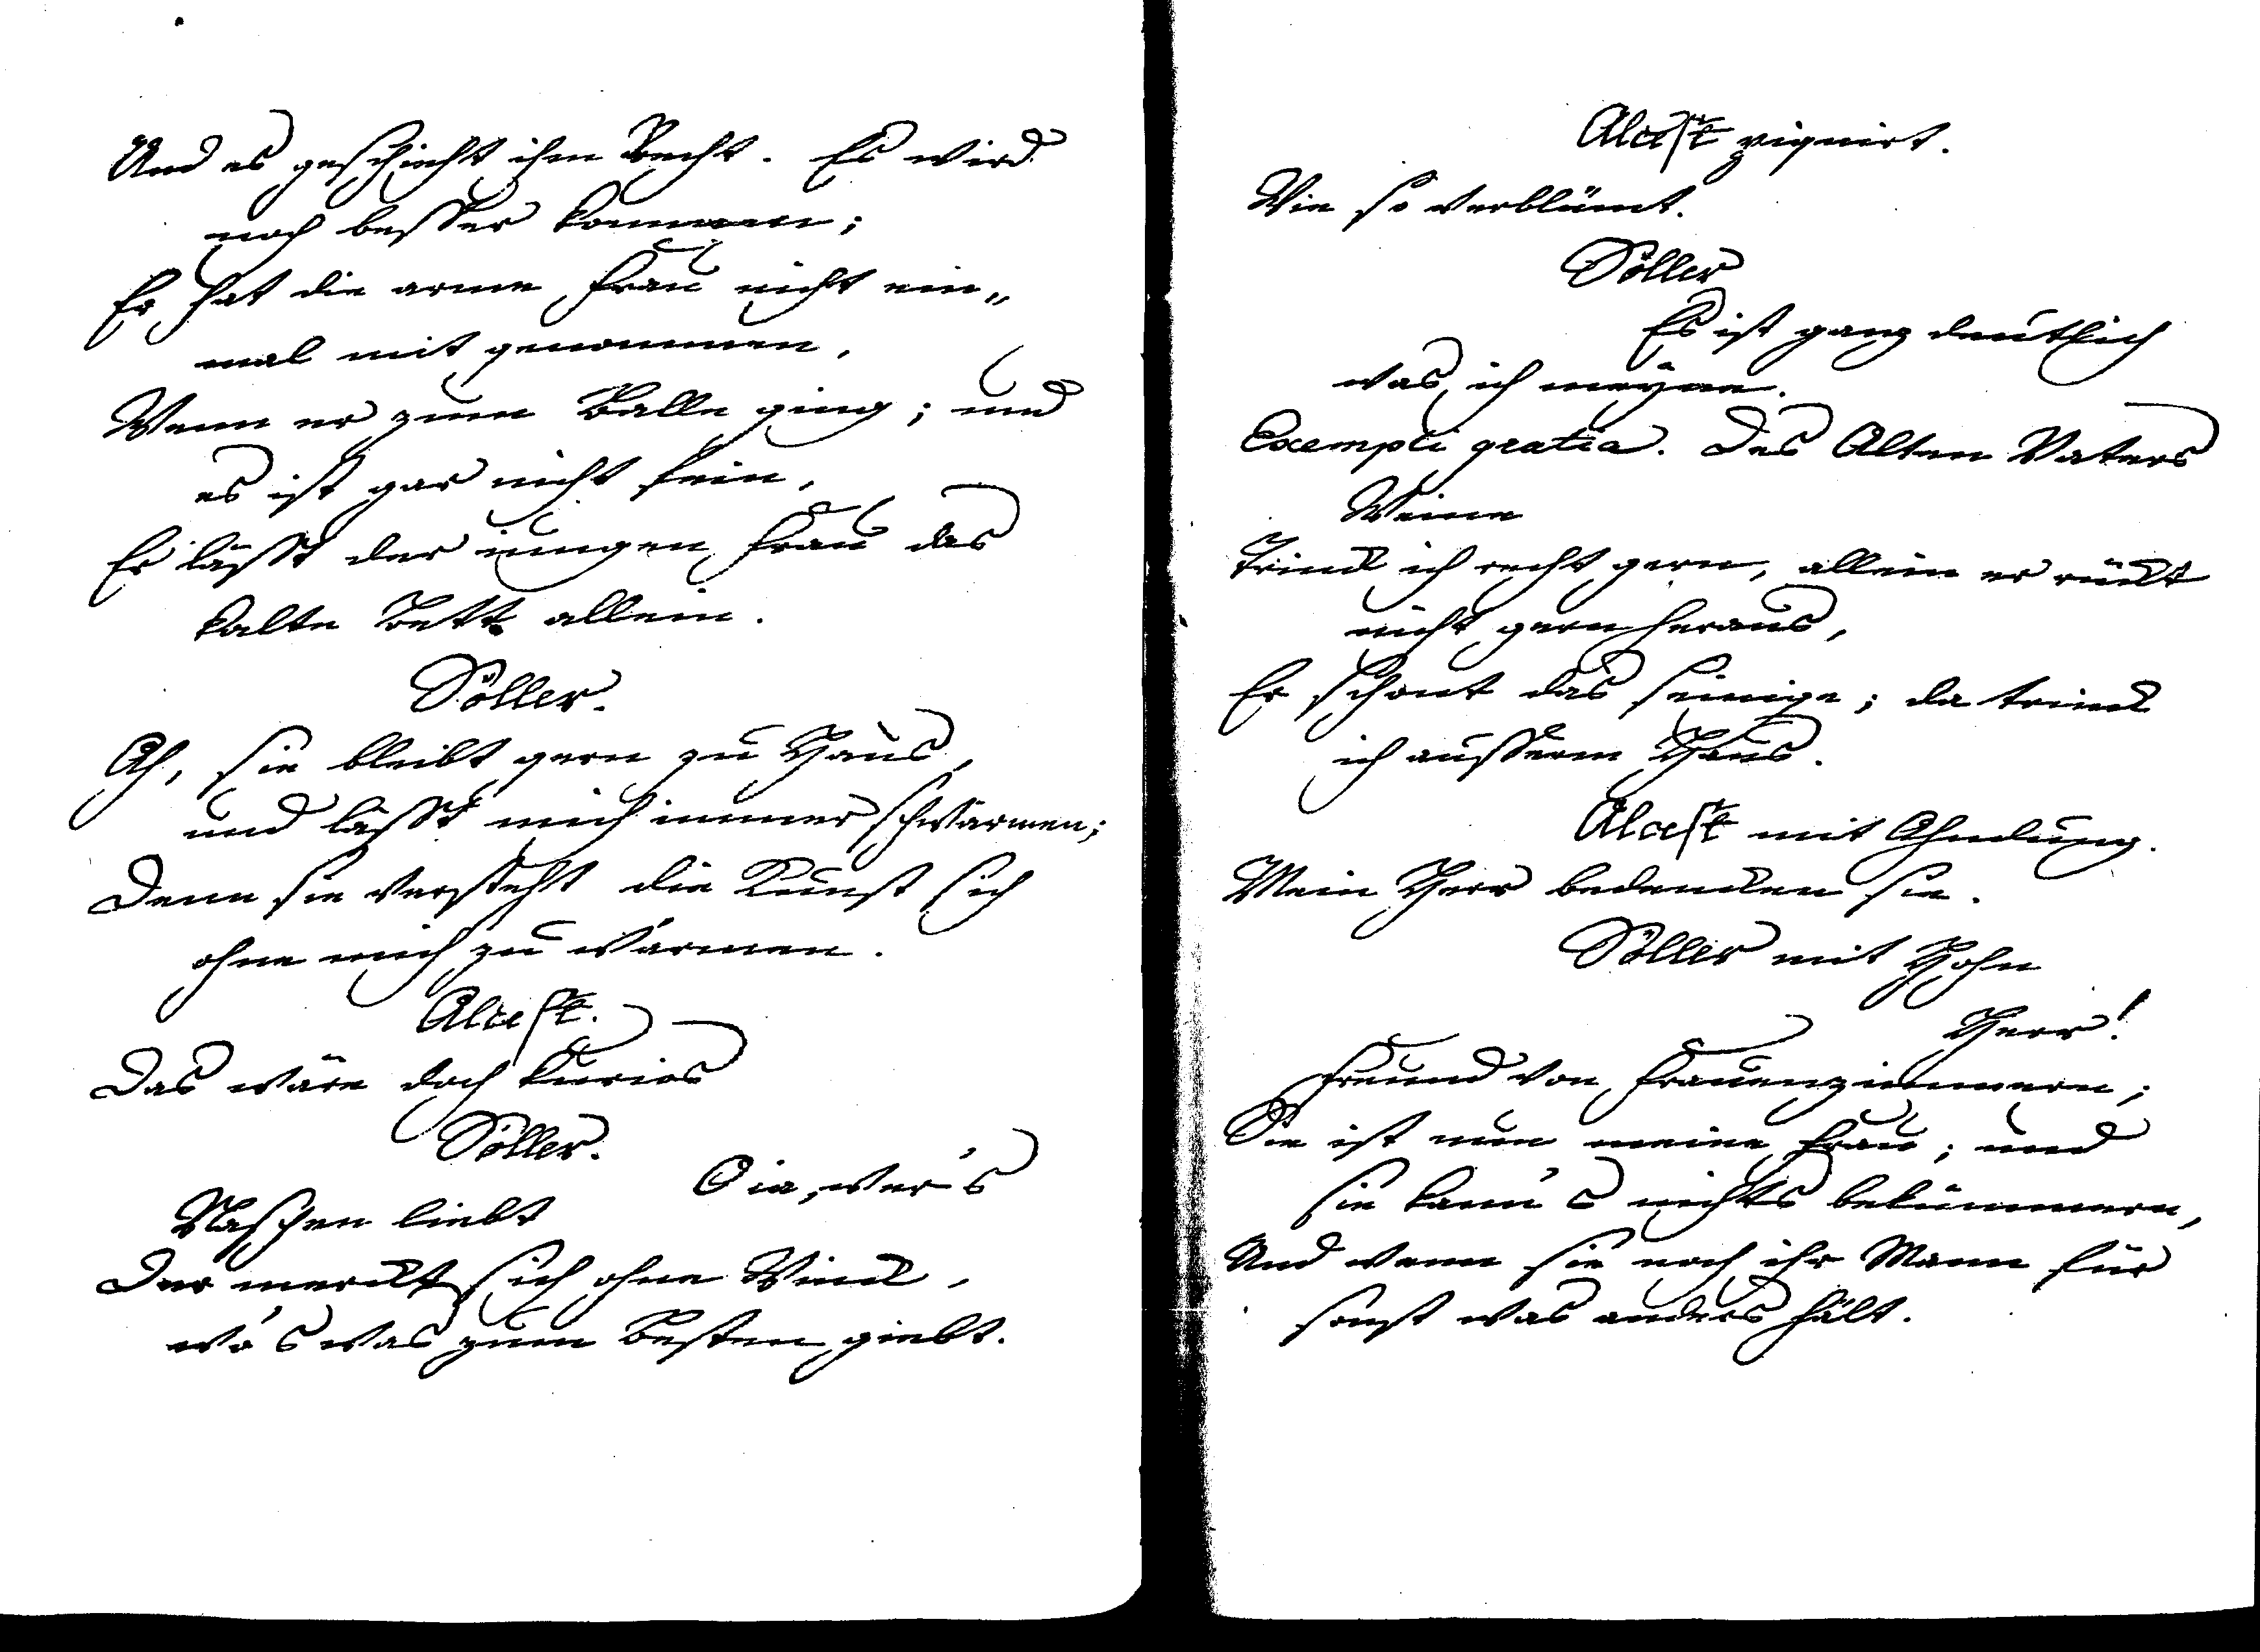 Und es geschieht ihm Recht. Es wird
noch besser kommen;
Er hat die arme Frau nicht ein„
mal mit genommen,
Wenn er zum Balle ging; und
es ist gar nicht fein,
Er lässt der iungen Frau das
kalte Bett allein.
Söller.
Ah, sie bleibt gern zu Haus,
und lässt mich immer schwärmen;
Denn sie versteht die Kunst sich
ohne mich zu wärmen.
Alcest.
Das wäre doch kurios
Söller.
O ia, wer's
Naschen liebt
Der merckt sich ohne Winck,
wo's was zum Besten giebt.
Alcest piquirt.
Wie so verblümt.
Söller
Es ist ganz deutlich
was ich meyne.
Exempli gratia. Des Alten Vaters
Weine
Trinck ich recht gern, allein er rückt
nicht gern heraus,
Er schont das seinige; da trinck
ich ausserm Haus.
Alcest mit Ahndung.
Mein Herr bedencken sie.
Söller mit Hohn
Herr!
Freund von Frauenzimmern;
Sie ist nun meine Frau; und
sie kann's nichts bekümmern,
Und wenn sie noch ihr Mann für
sonst was anders hält.